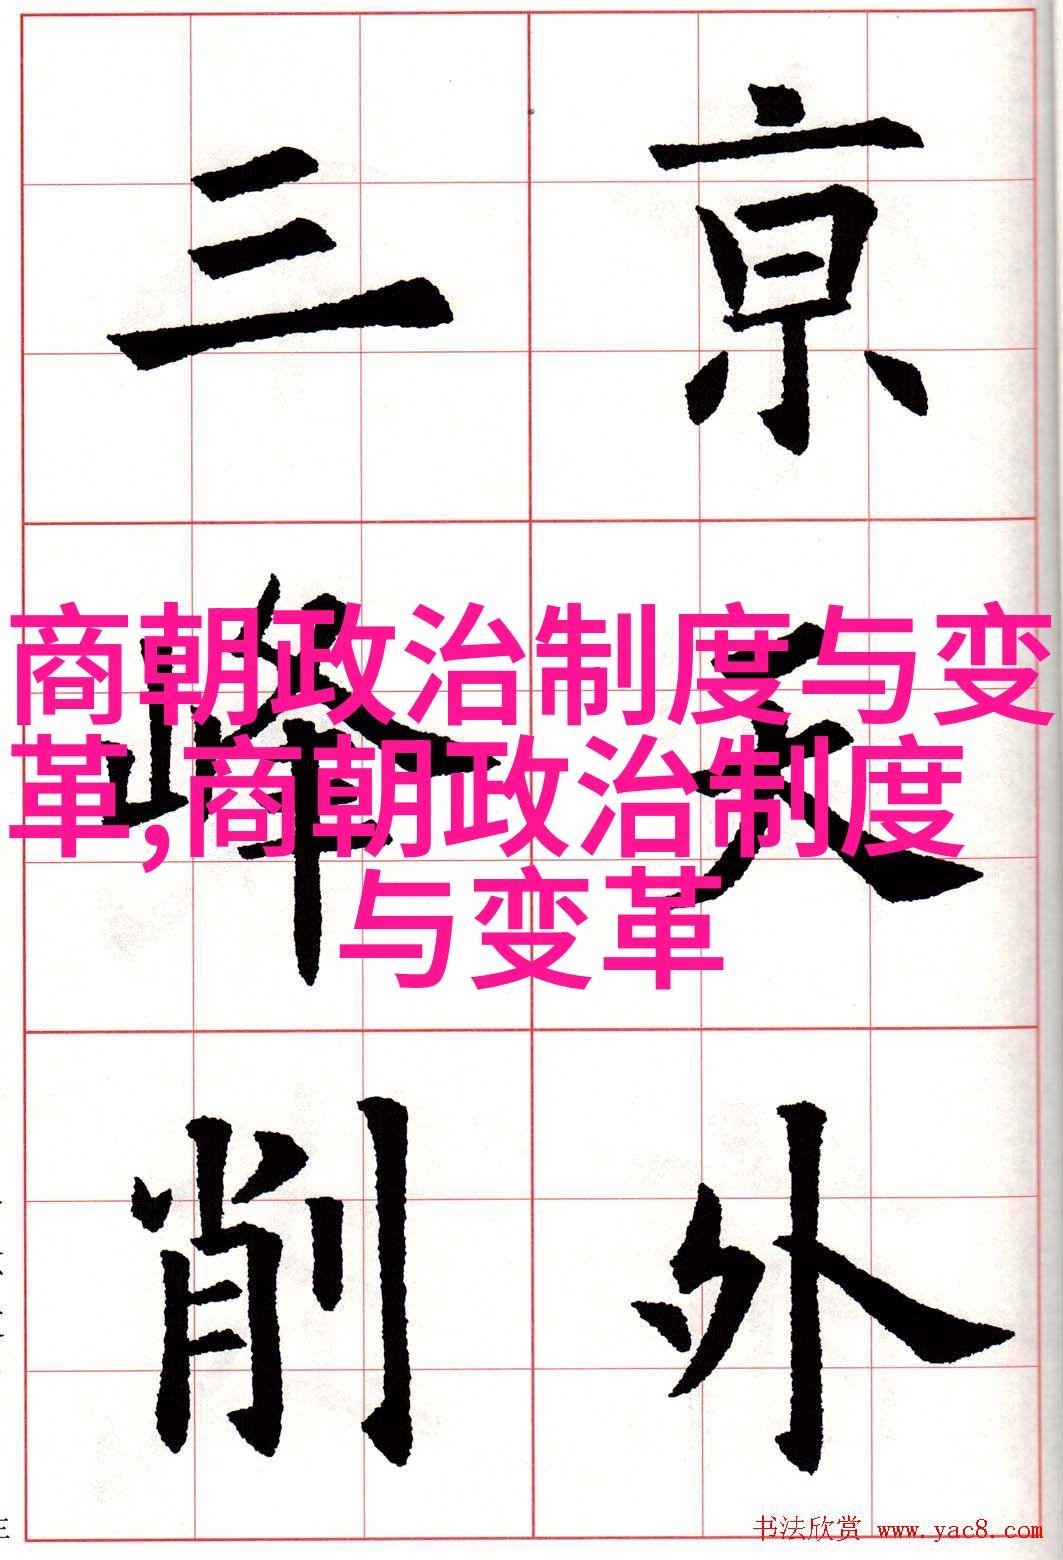 亰天外
三峰削
商朝政治制度与变
革,商朝政治制度
与变革
书法欣赏 www.yac8.com